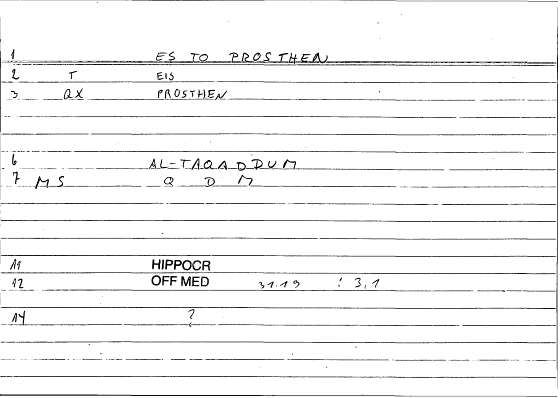 1 ES TO PROSTHEN
2 T EIS
3 QX PROSTHEN
6 AL-TAQADDUM
7 MS Q D M
11 HIPPOCR
12 OFF MED 31.19 : 3,1
14 ?